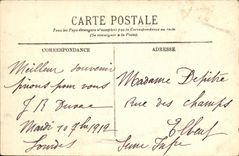 CARTE POSTALE
Tous les pays étrangers n'acceptent pas la Correspondance au recto
(Se renseigner à la Poste)
CORRESPONDANCE
ADRESSE
Meilleur souvenir
prions pour vous
J B
Mardi 10 1912
Lourdes
Madame Depitre
Rue des champs
Elbeuf
Seine Infre